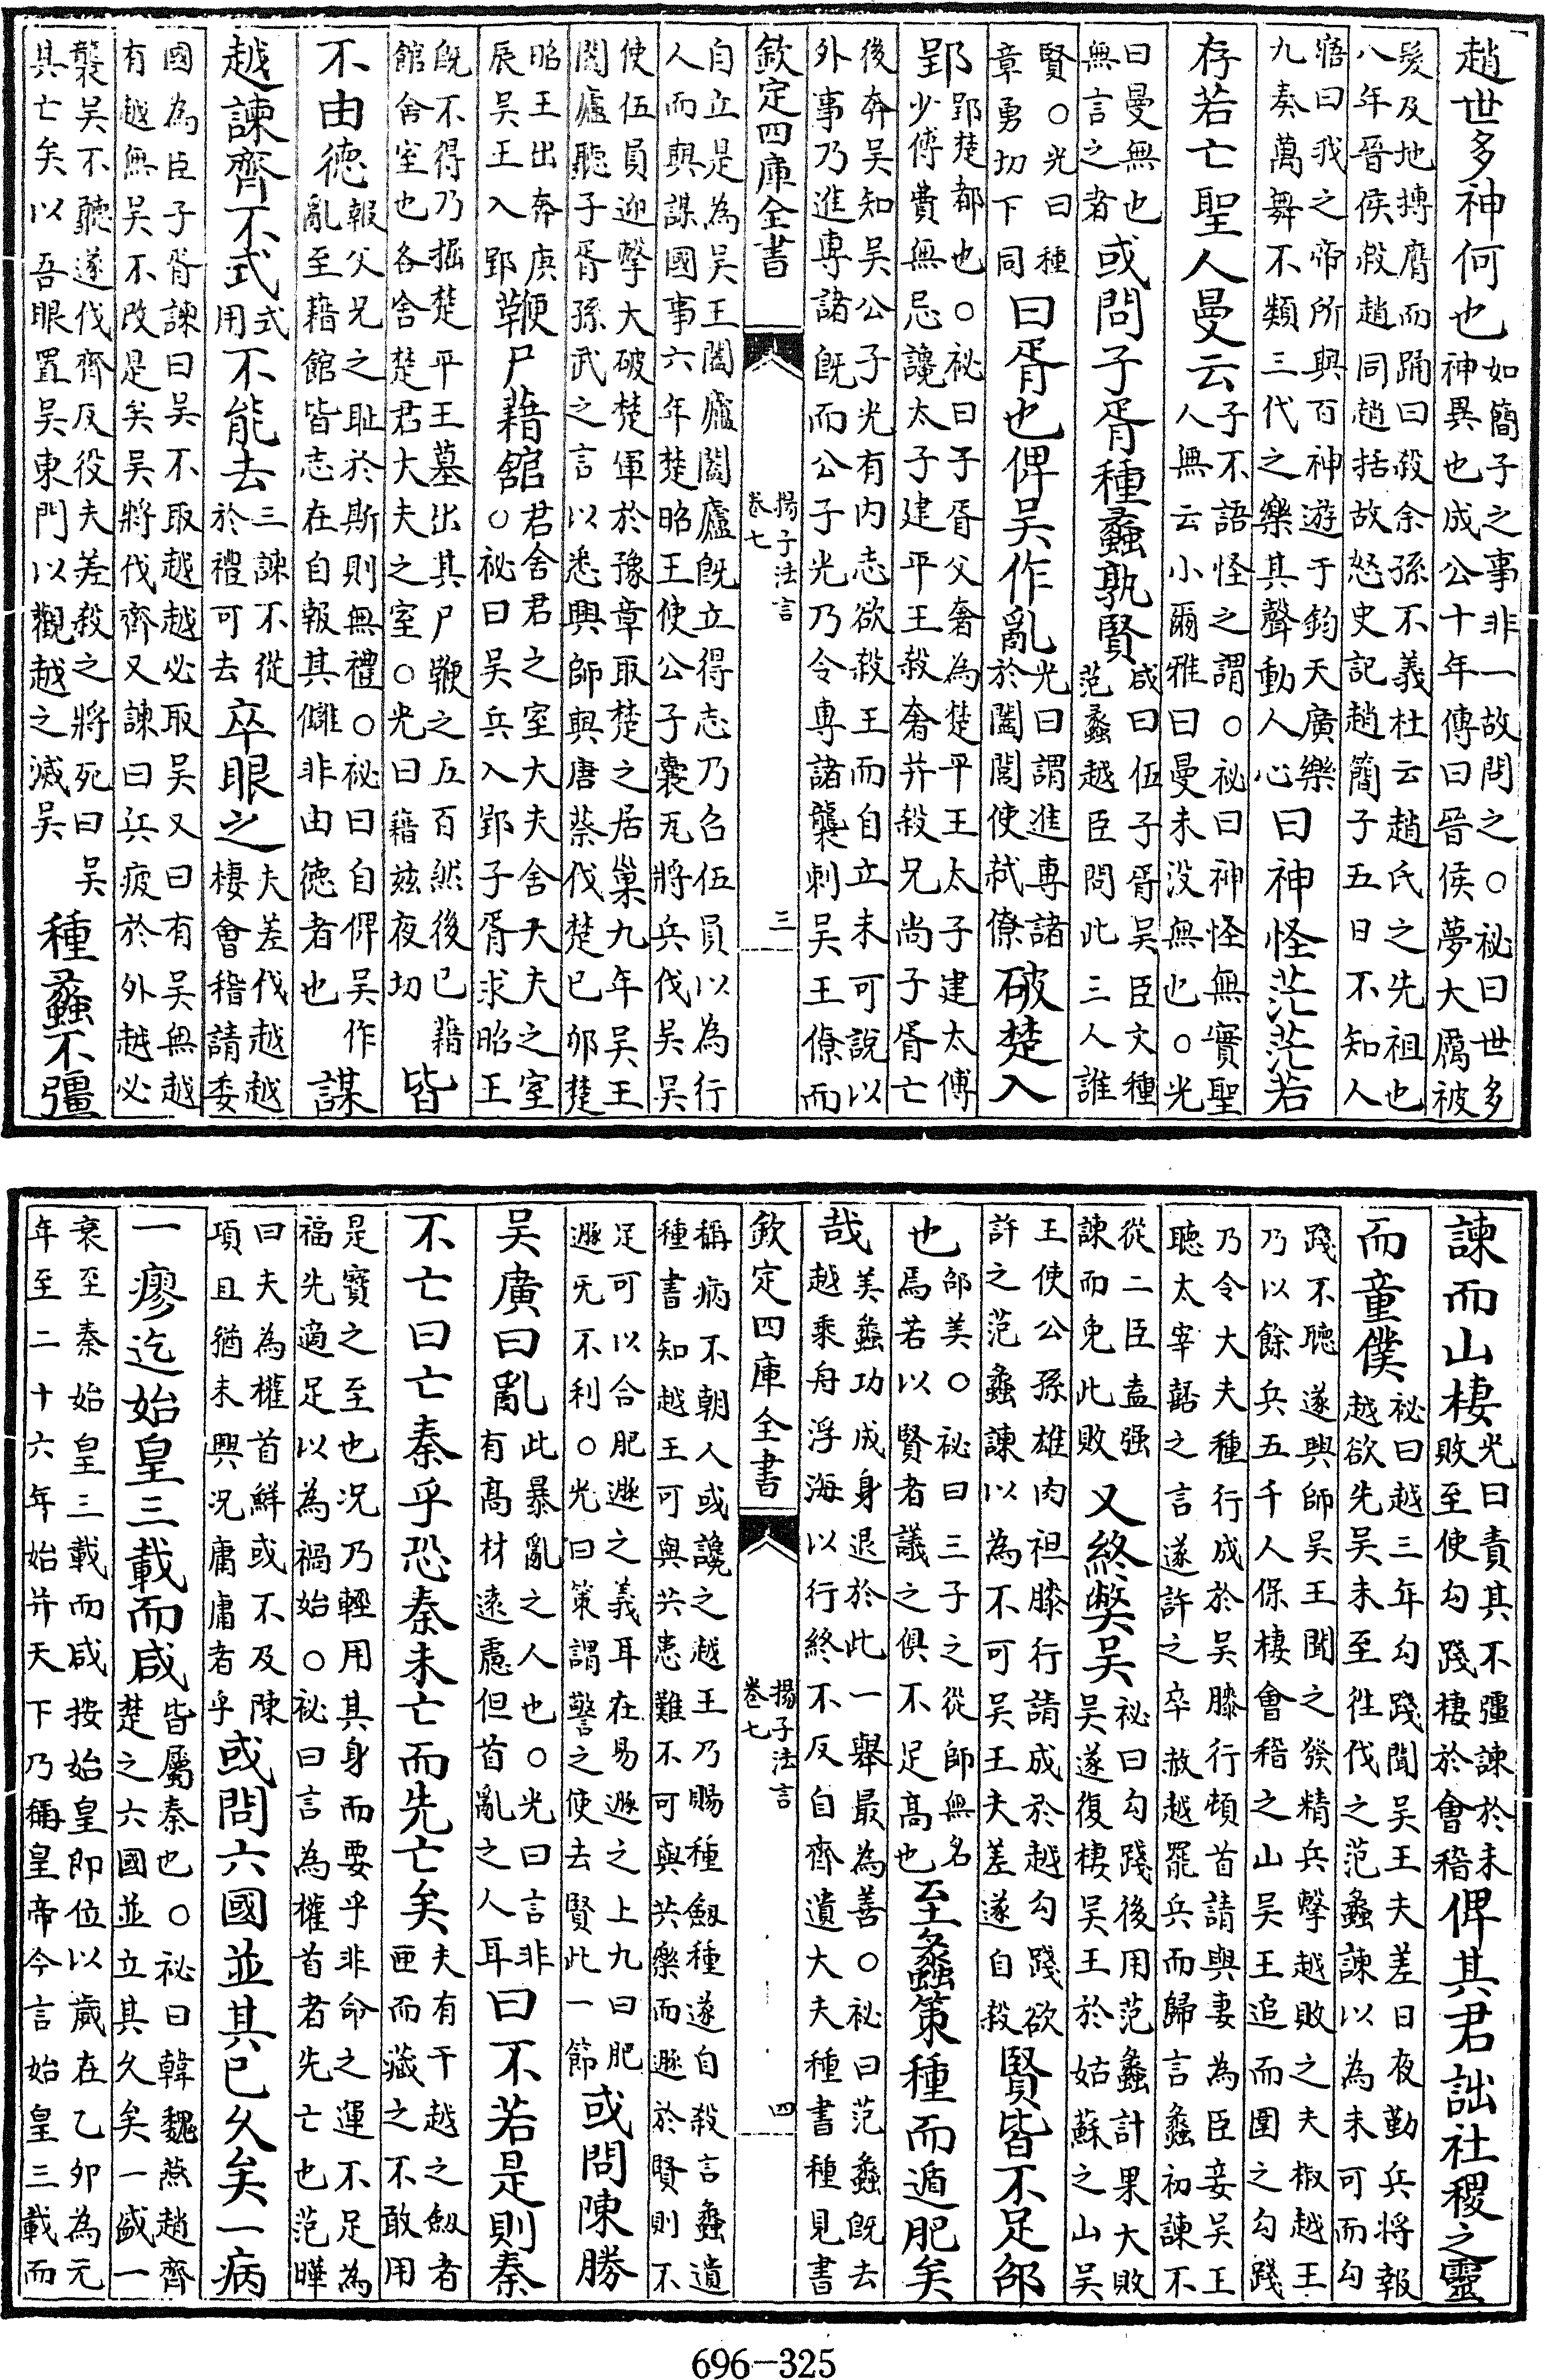 趙世多神何也如簡子之事非一故問之○祕曰世多神異也成公十年傳曰晉侯夢大厲被
髪及地搏膺而踊曰殺余孫不義杜云趙氏之先祖也八年晉侯殺趙同趙括故怒史記趙簡子五日不知人
寤曰我之帝所與百神遊于鈞天廣樂九奏萬舞不類三代之樂其聲動人心曰神怪茫茫若
存若亡聖人曼云子不語怪之謂○祕曰神怪無實聖人無云小爾雅曰曼末没無也○光
曰曼無也無言之者或問子胥種蠡孰賢咸曰伍子胥吴臣文種范蠡越臣問此三人誰
賢○光曰種章勇切下同曰胥也俾吴作亂光曰謂進專諸於闔閭使弑僚破楚入
郢郢楚都也○祕曰子胥父奢為楚平王太子建太傅少傅費無忌讒太子建平王殺奢并殺兄尚子胥亡
後奔吴知吴公子光有内志欲殺王而自立未可說以外事乃進專諸既而公子光乃令專諸襲刺吴王僚而
欽定四庫全書
揚子法言
卷七
三
自立是為吴王闔廬闔廬既立得志乃召伍員以為行人而與謀國事六年楚昭王使公子囊瓦將兵伐吴吴
使伍員迎擊大破楚軍於豫章取楚之居巢九年吴王闔廬聽子胥孫武之言以悉興師與唐蔡伐楚已卯楚
昭王出奔庚辰吴王入郢鞭尸藉舘君舍君之室大夫舍大夫之室○祕曰吴兵入郢子胥求昭王
既不得乃掘楚平王墓出其尸鞭之五百然後已藉館舍室也各舍楚君大夫之室○光曰藉兹夜切皆
不由徳報父兄之耻於斯則無禮○祕曰自俾吴作亂至藉館皆志在自報其讎非由徳者也謀
越諫齊不式式用不能去三諫不從於禮可去卒眼之夫差伐越越棲會稽請委
國為臣子胥諫曰吴不取越越必取吴又曰有吴無越有越無吴不改是矣吴將伐齊又諫曰兵疲於外越必
襲吴不聽遂伐齊反役夫差殺之將死曰吴其亡矣以吾眼置吴東門以觀越之滅吴種蠡不彊
諫而山棲光曰責其不彊諫於未敗至使勾踐棲於會稽俾其君詘社稷之靈
而童僕祕曰越三年勾踐聞吴王夫差日夜勤兵將報越欲先吴未至徃伐之范蠡諫以為未可而勾
踐不聽遂興師吴王聞之發精兵擊越敗之夫椒越王乃以餘兵五千人保棲會稽之山吴王追而圍之勾踐
乃令大夫種行成於吴膝行頓首請與妻為臣妾吴王聽太宰嚭之言遂許之卒赦越罷兵而歸言蠡初諫不
從二臣盍强諫而免此敗又終獘吴祕曰勾踐後用范蠡計果大敗吴遂復棲吴王於姑蘇之山吴
王使公孫雄肉袒膝行請成於越勾踐欲許之范蠡諫以為不可吴王夫差遂自殺賢皆不足邵
也邵美○祕曰三子之從師無名焉若以賢者議之俱不足高也至蠡策種而遁肥矣
哉美蠡功成身退於此一舉最為善○祕曰范蠡既去越乘舟浮海以行終不反自齊遺大夫種書種見書
欽定四庫全書
揚子法言
卷七
四
稱病不朝人或讒之越王乃賜種劔種遂自殺言蠡遺種書知越王可與共患難不可與共樂而遯於賢則不
足可以合肥遯之義耳在易遯之上九曰肥遯无不利○光曰策謂警之使去賢此一節或問陳勝
吴廣曰亂此暴亂之人也○光曰言非有髙材遠慮但首亂之人耳曰不若是則秦
不亡曰亡秦乎恐秦未亡而先亡矣夫有干越之劔者匣而藏之不敢用
是寳之至也况乃輕用其身而要乎非命之運不足為福先適足以為禍始○祕曰言為權首者先亡也范曄
曰夫為權首鮮或不及陳項且猶未興況庸庸者乎或問六國並其已乆矣一病
一瘳迄始皇三載而咸皆屬秦也○祕曰韓魏燕趙齊楚之六國並立其久矣一盛一
衰至秦始皇三載而咸按始皇即位以歲在乙卯為元年至二十六年始并天下乃稱皇帝今言始皇三載而
696-325